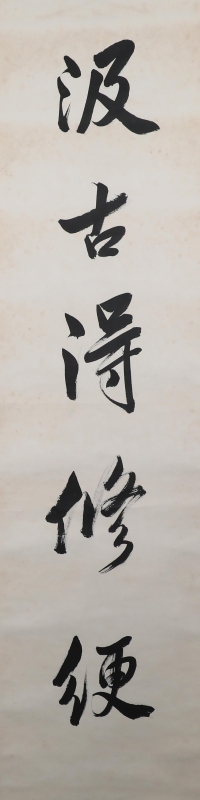 汲古得修綆